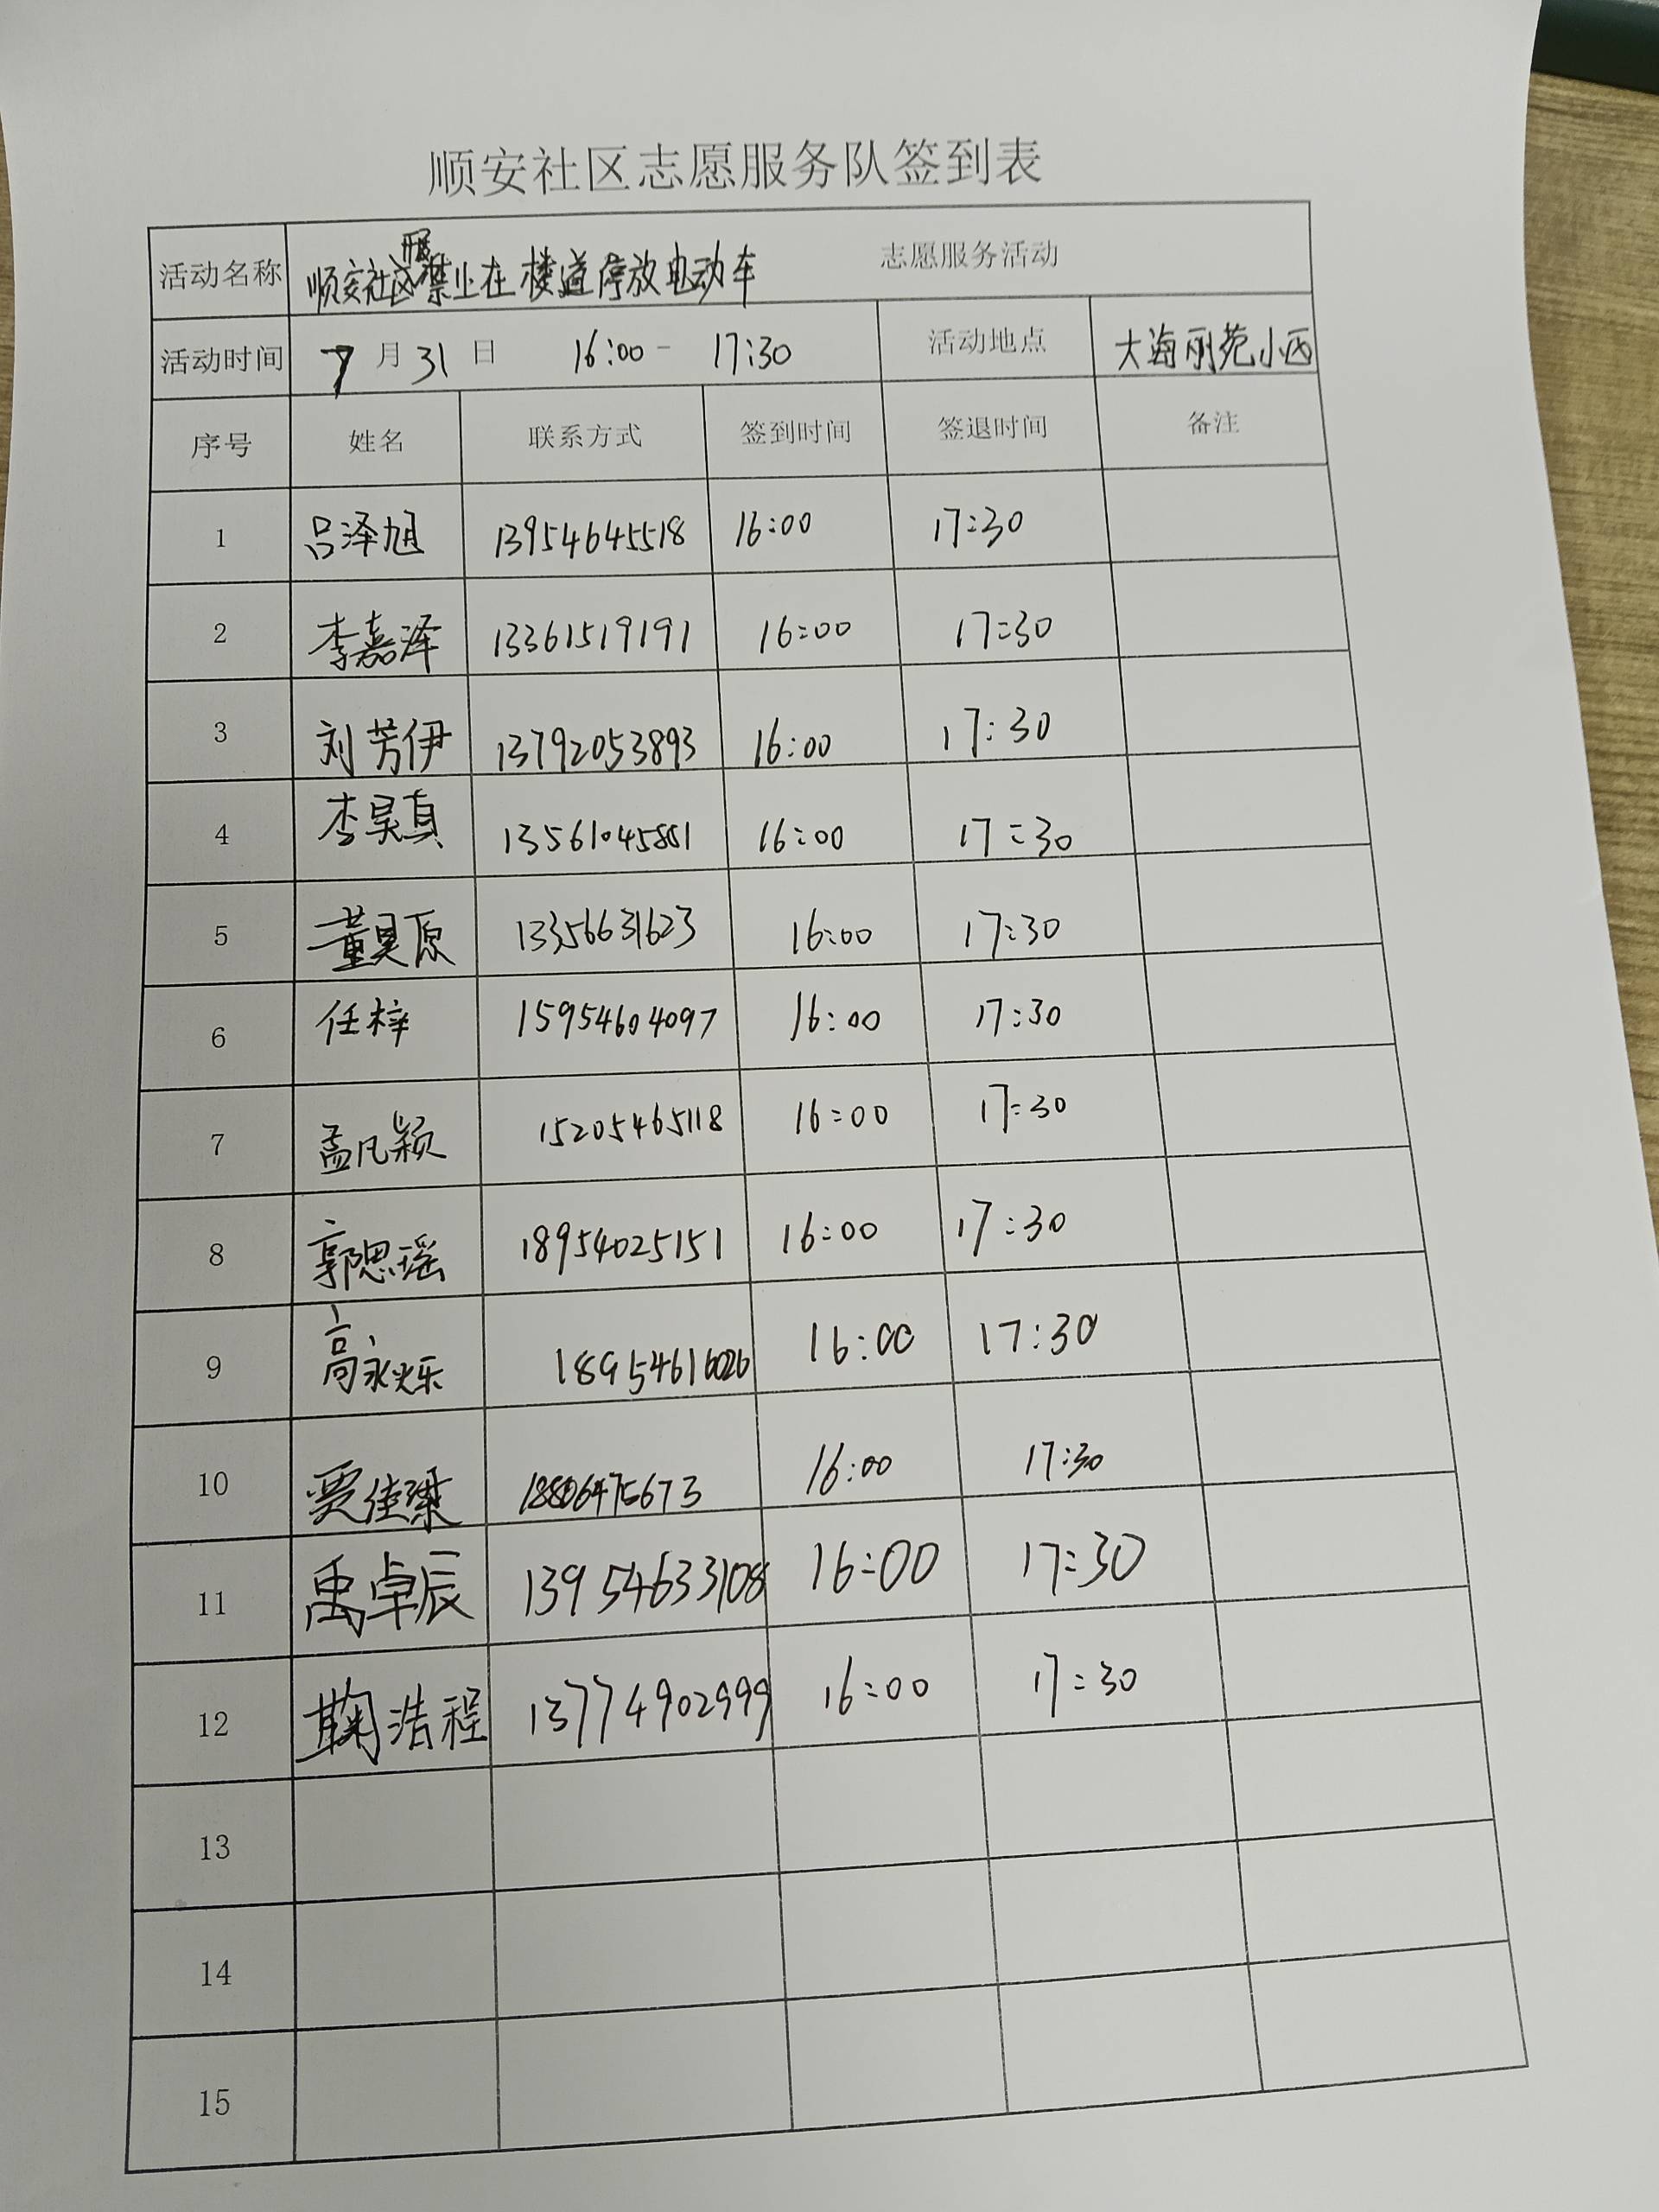 顺安社区志愿服务队签到表
活动名称 顺安社区开展禁止在楼道停放电动车 志愿服务活动
活动时间 7月31日 16:00-17:30 活动地点 大海丽苑小西
序号 姓名 联系方式 签到时间 签退时间 备注
1 吕泽旭 13954645518 16:00 17:30
2 李嘉泽 13361519191 16:00 17:30
3 刘芳伊 13792053893 16:00 17:30
4 李昊真 13561045881 16:00 17:30
5 董昊原 13356631623 16:00 17:30
6 任梓 15954604097 16:00 17:30
7 孟凡颖 15205465118 16:00 17:30
8 郭思瑶 18954025151 16:00 17:30
9 高永烁 18954616026 16:00 17:30
10 贾佳璨 16:00 17:30
11 禹卓辰 13954633108 16:00 17:30
12 鞠浩程 13774902999 16:00 17:30
13
14
15